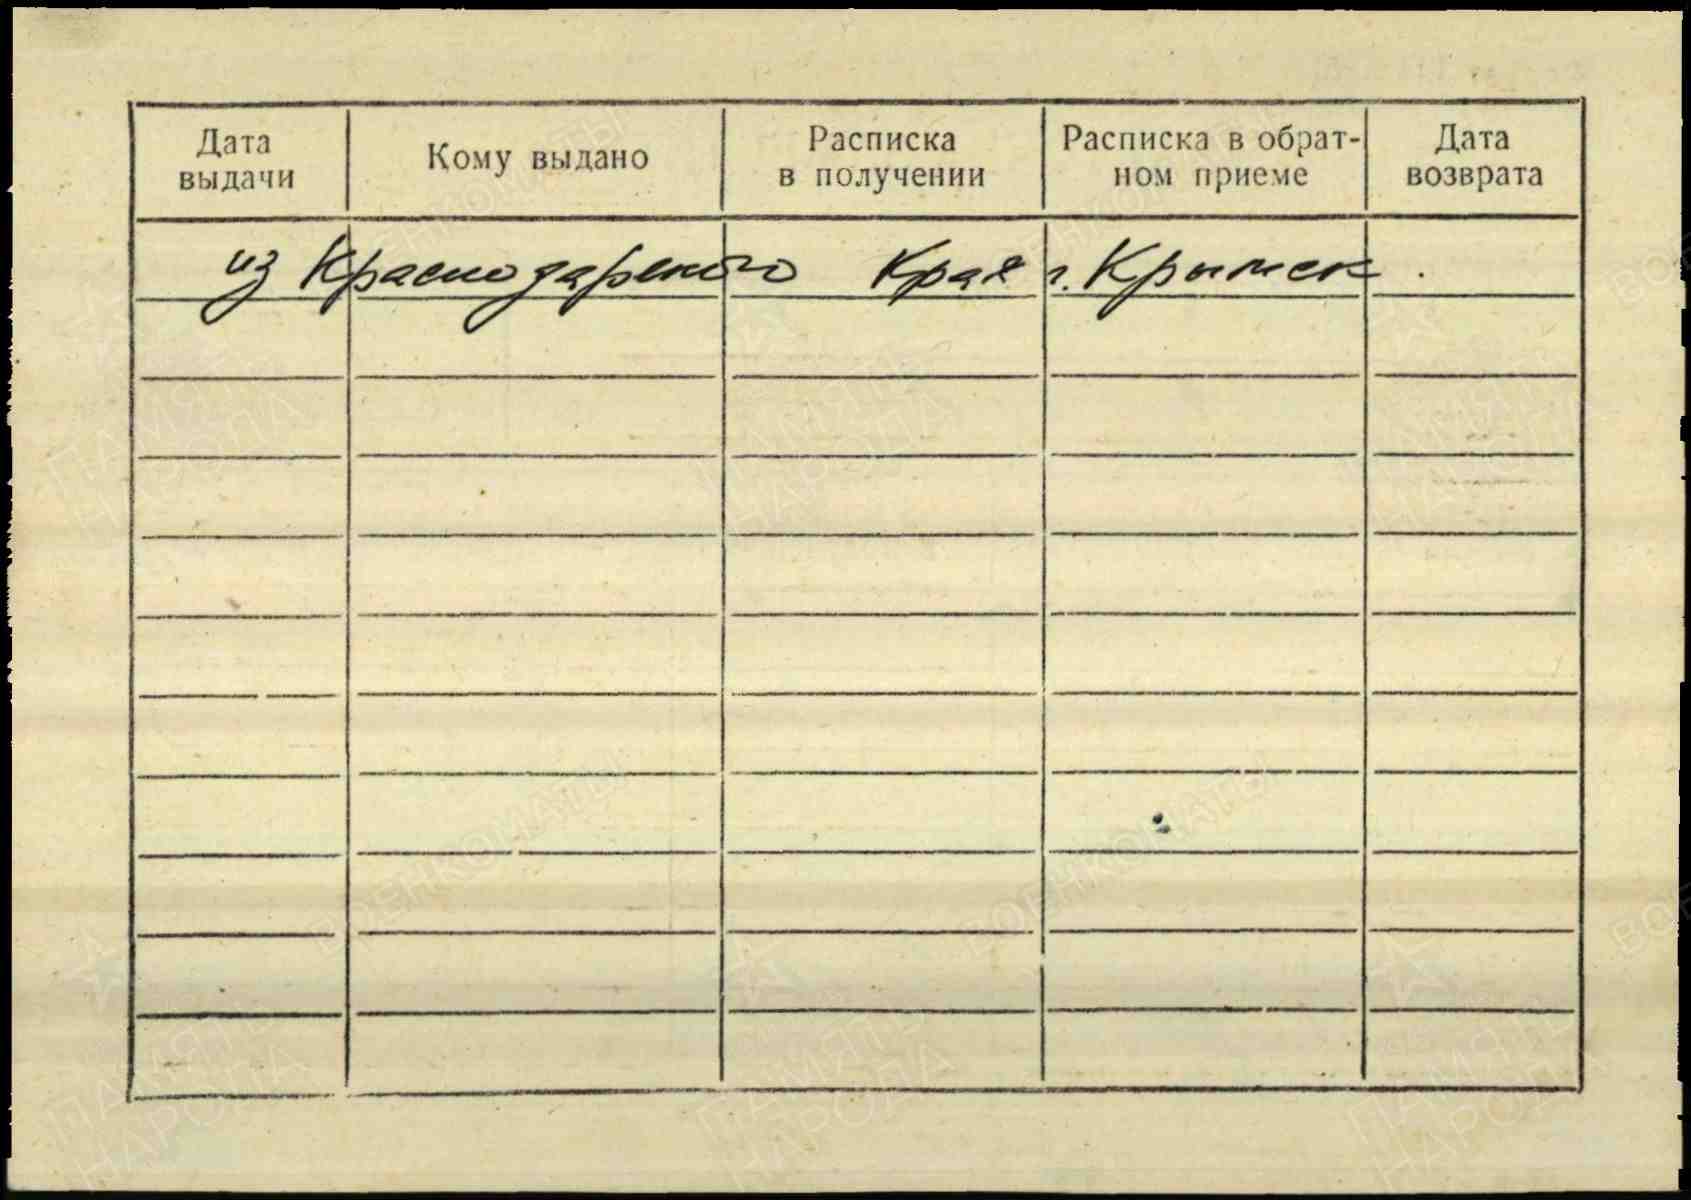 Дата выдачи
Кому выдано
Расписка в получении
Расписка в обрат-
ном приеме
Дата возврата
из Краснодарского Края г. Крымск.
ПАМЯТЬ НАРОДА
ВОЕНКОМАТЫ